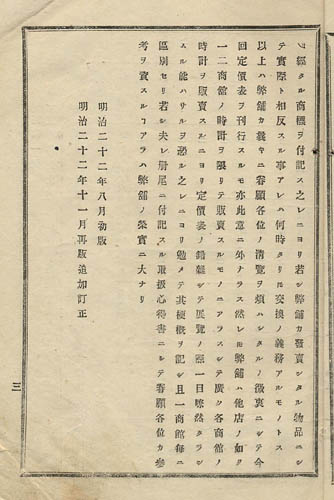 ヲ經タル商標ヲ付記ス之レニヨリ若シ弊舖カ發賣シタル物品ニシ
テ實際ト相反スル事アレハ何時タリ𪜈交換ノ義務アルモノトス
以上ハ弊舖カ曩キニ眷顧各位ノ淸覽ヲ煩ハシタルノ微衷ニシテ今
回定價表ヲ刊行スルモ亦此意ニ外ナラス然レ𪜈弊舖ハ他店ノ如ク
一二商館ノ時計ヲ限リテ販賣スルモノニアラスシテ廣ク各商館ノ
時計ヲ販賣スルニヨリ定價表ノ錯雜シテ展覽ノ際一目瞭然タラシ
スル能ハサルヲ憂ル之レニヨリ勉メテ其梗概ヲ記シ且一商館每ニ
區別セリ若シ夫レ册尾ニ付記スル取扱心得書ニシテ眷顧各位カ參
考ヲ資スルコアラハ弊舖ノ榮實ニ大ナリ
明治二十二年八月初版
明治二十二年十一月再版追加訂正
三